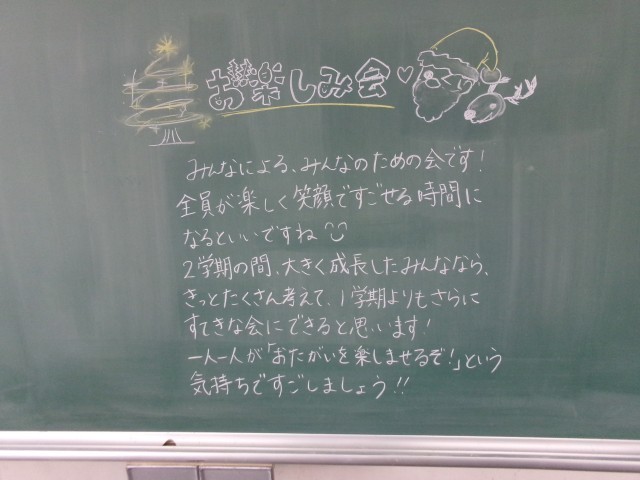 お楽しみ会♡
みんなによる、みんなのための会です！
全員が楽しく笑顔ですごせる時間に
なるといいですね
2学期の間、大きく成長したみんななら、
きっとたくさん考えて、1学期よりもさらに
すてきな会にできると思います！
一人一人が「おたがいを楽しませるぞ！」という
気持ちですごしましょう！！